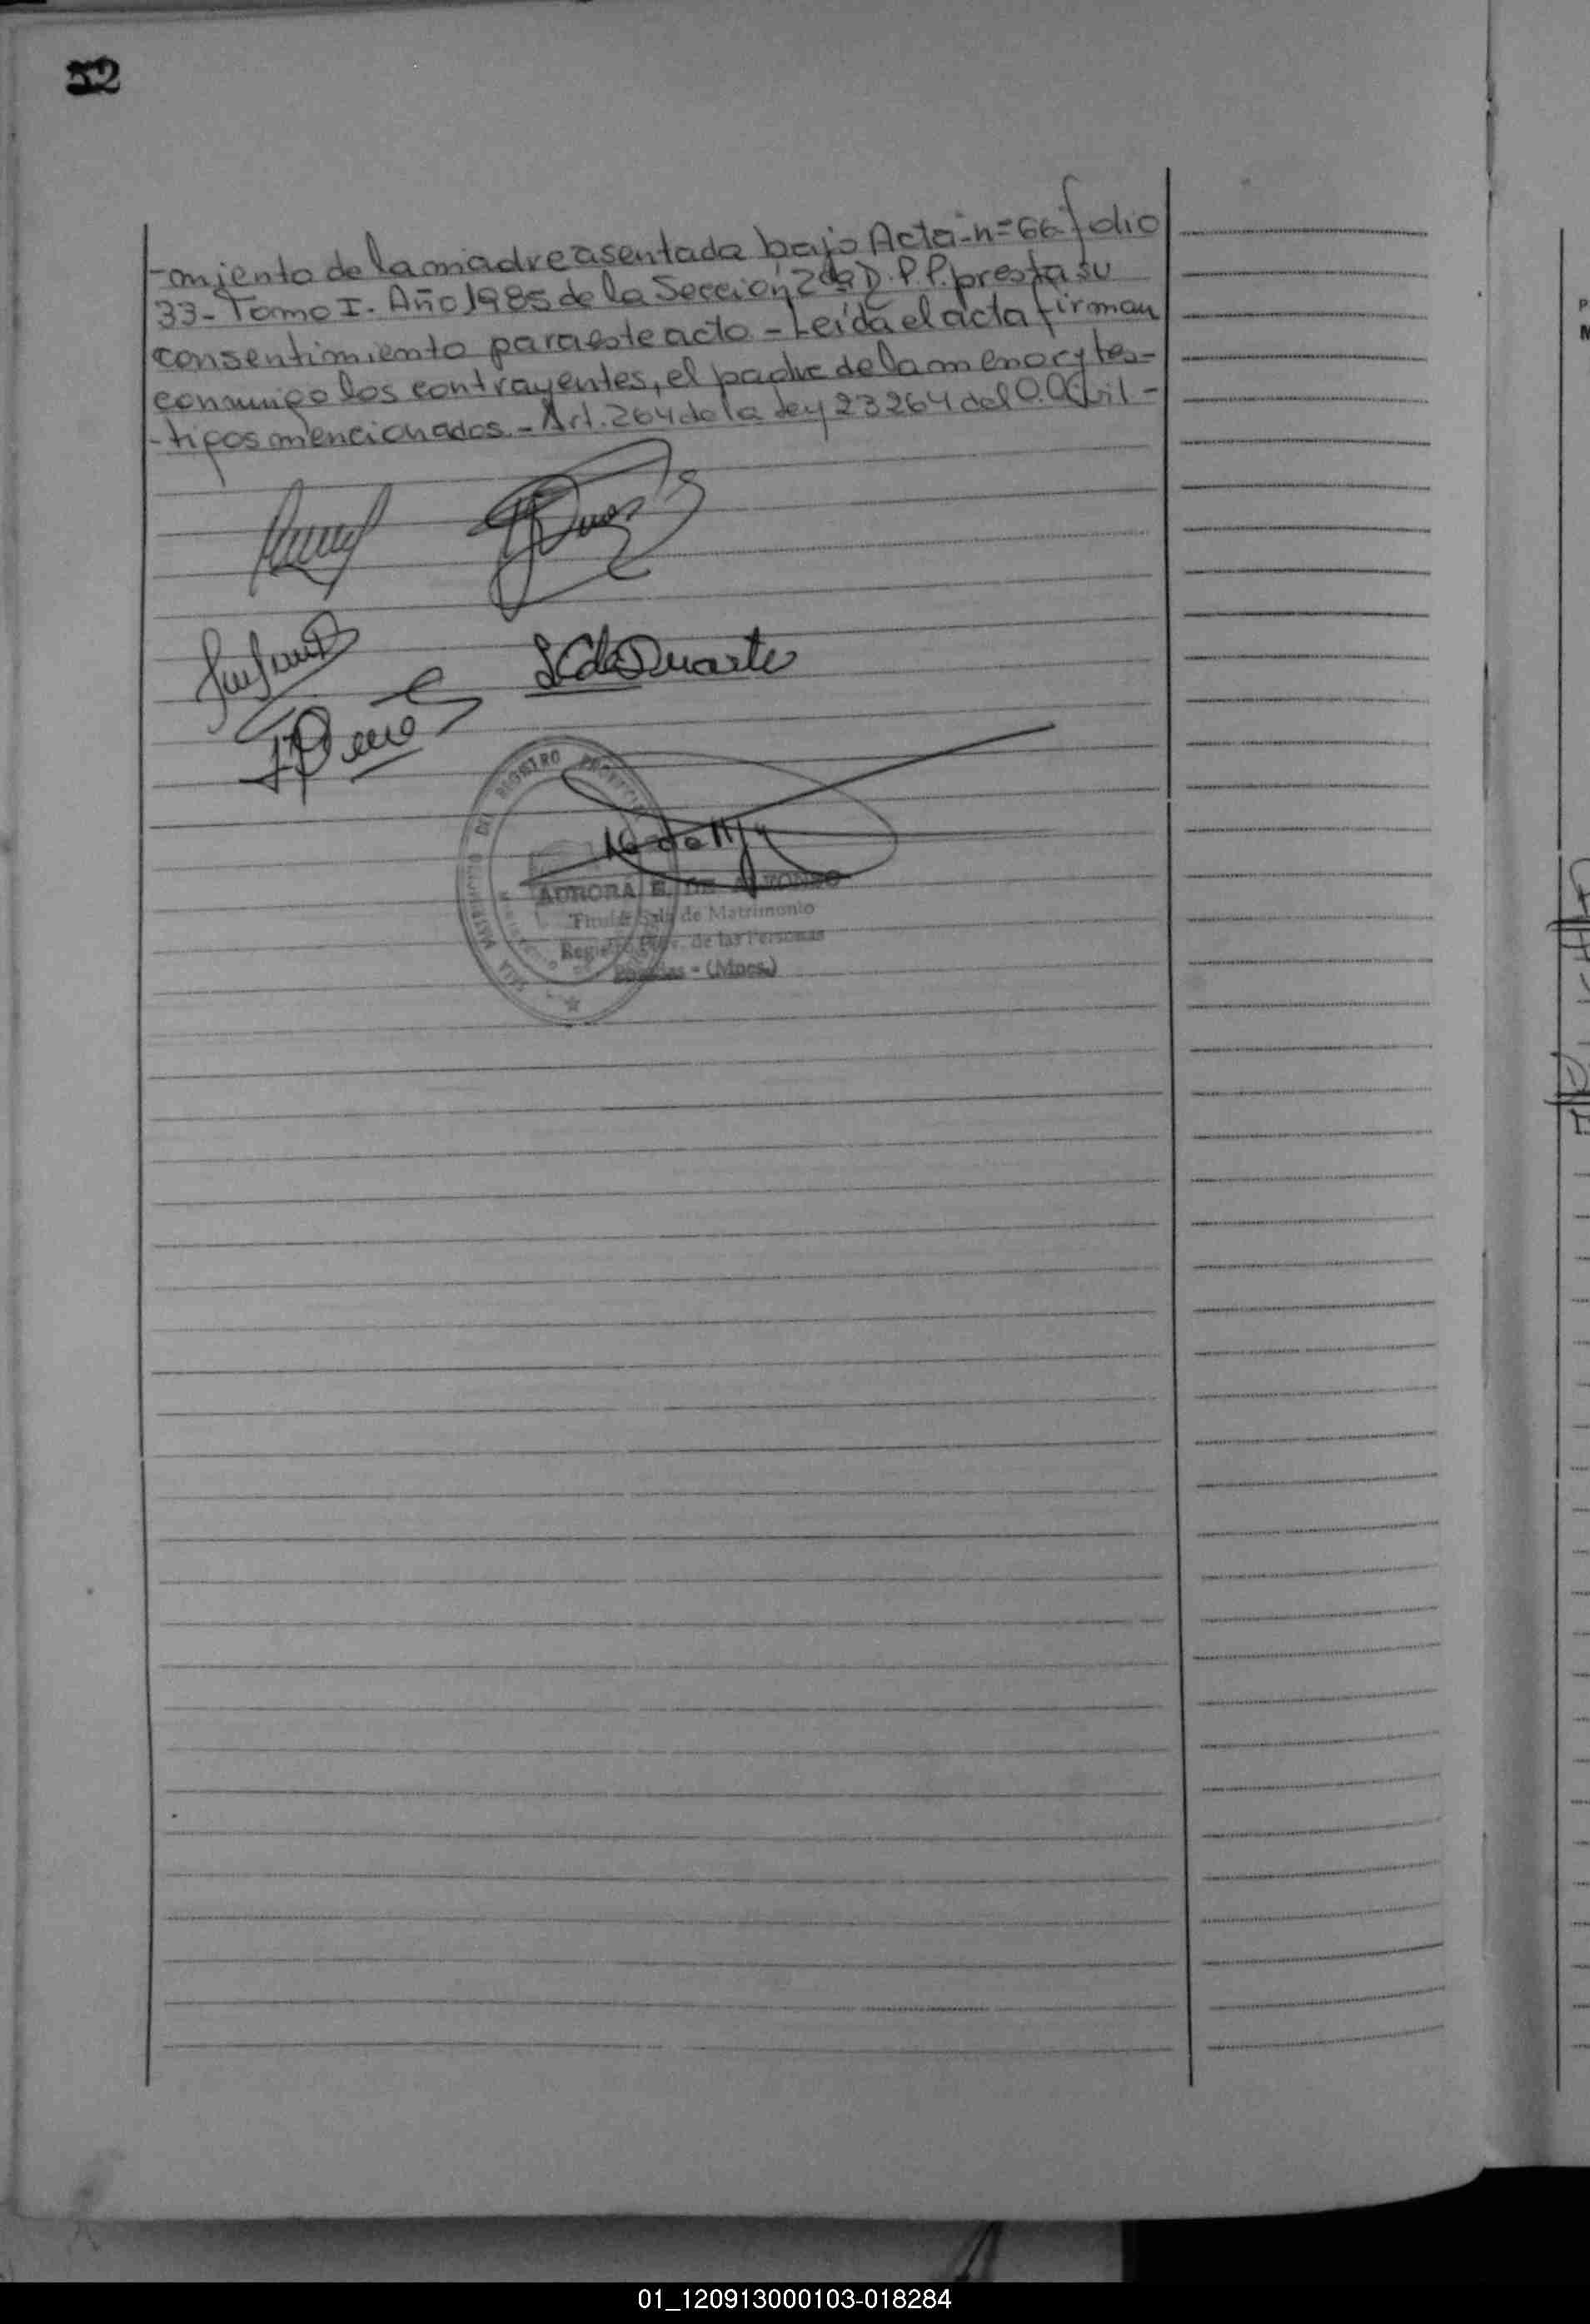 52
-miento de la madre asentada bajo Acta-n=66-folio
33-Tomo I. Año 1985 de la Sección 2da D.P.P. presta su
consentimiento para este acto - Leída el acta firman
conmigo los contrayentes, el padre de la menor y tes-
-tigos mencionados.- Art. 264 de la Ley 23264 del C. Civil -
L C de Duarte
REGISTRO PROVINCIAL
AURORA E. DE
Titular Sala de Matrimonio
Registro Prov. de las Personas
Posadas - (Mnes.)
01_120913000103-018284